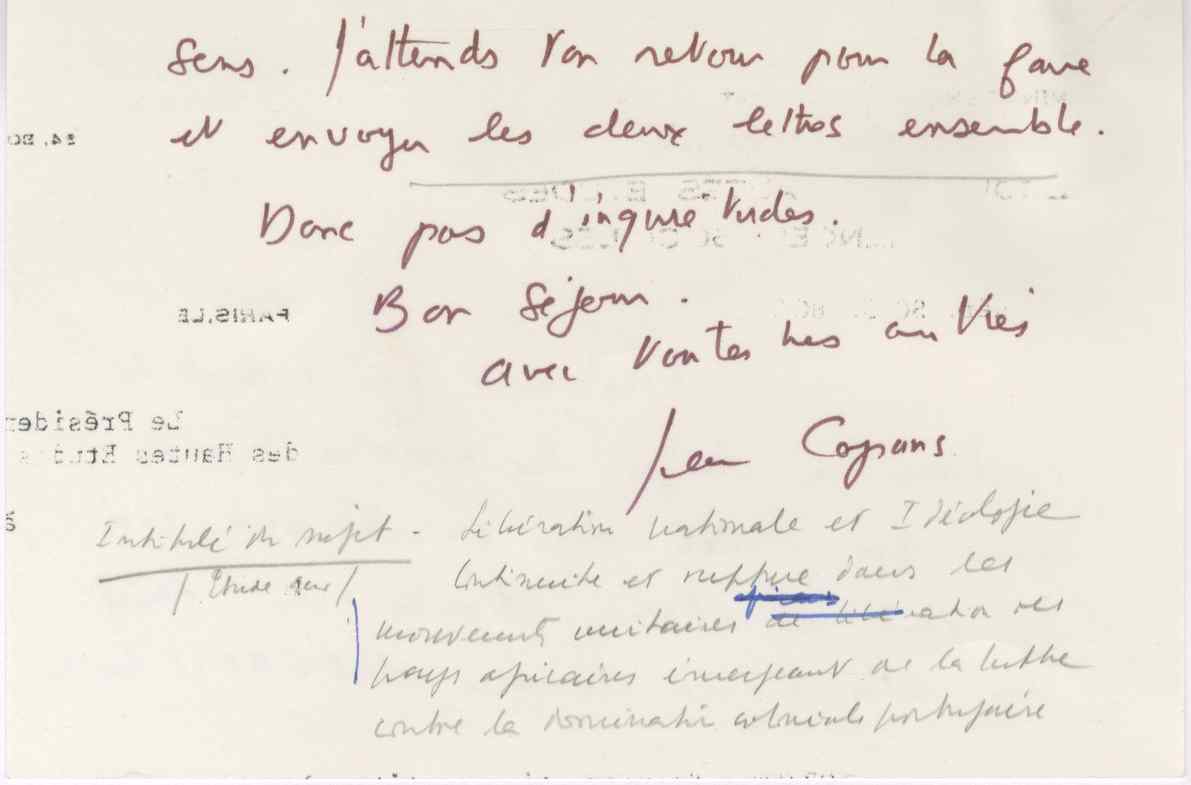 sens. J'attends ton retour pour la faire
et envoyer les deux lettres ensemble.
Donc pas d'inquiétudes.
Bon séjour.
avec toutes mes amitiés
Jean Copans
Intitulé du sujet - Libération nationale et Idéologie
/ Etude sur / Continuité et rupture dans les
mouvements unitaires de libération des
pays africains émergeant de la lutte
contre la domination coloniale portugaise
PARIS, LE
Le Présiden
des Hautes Etudes